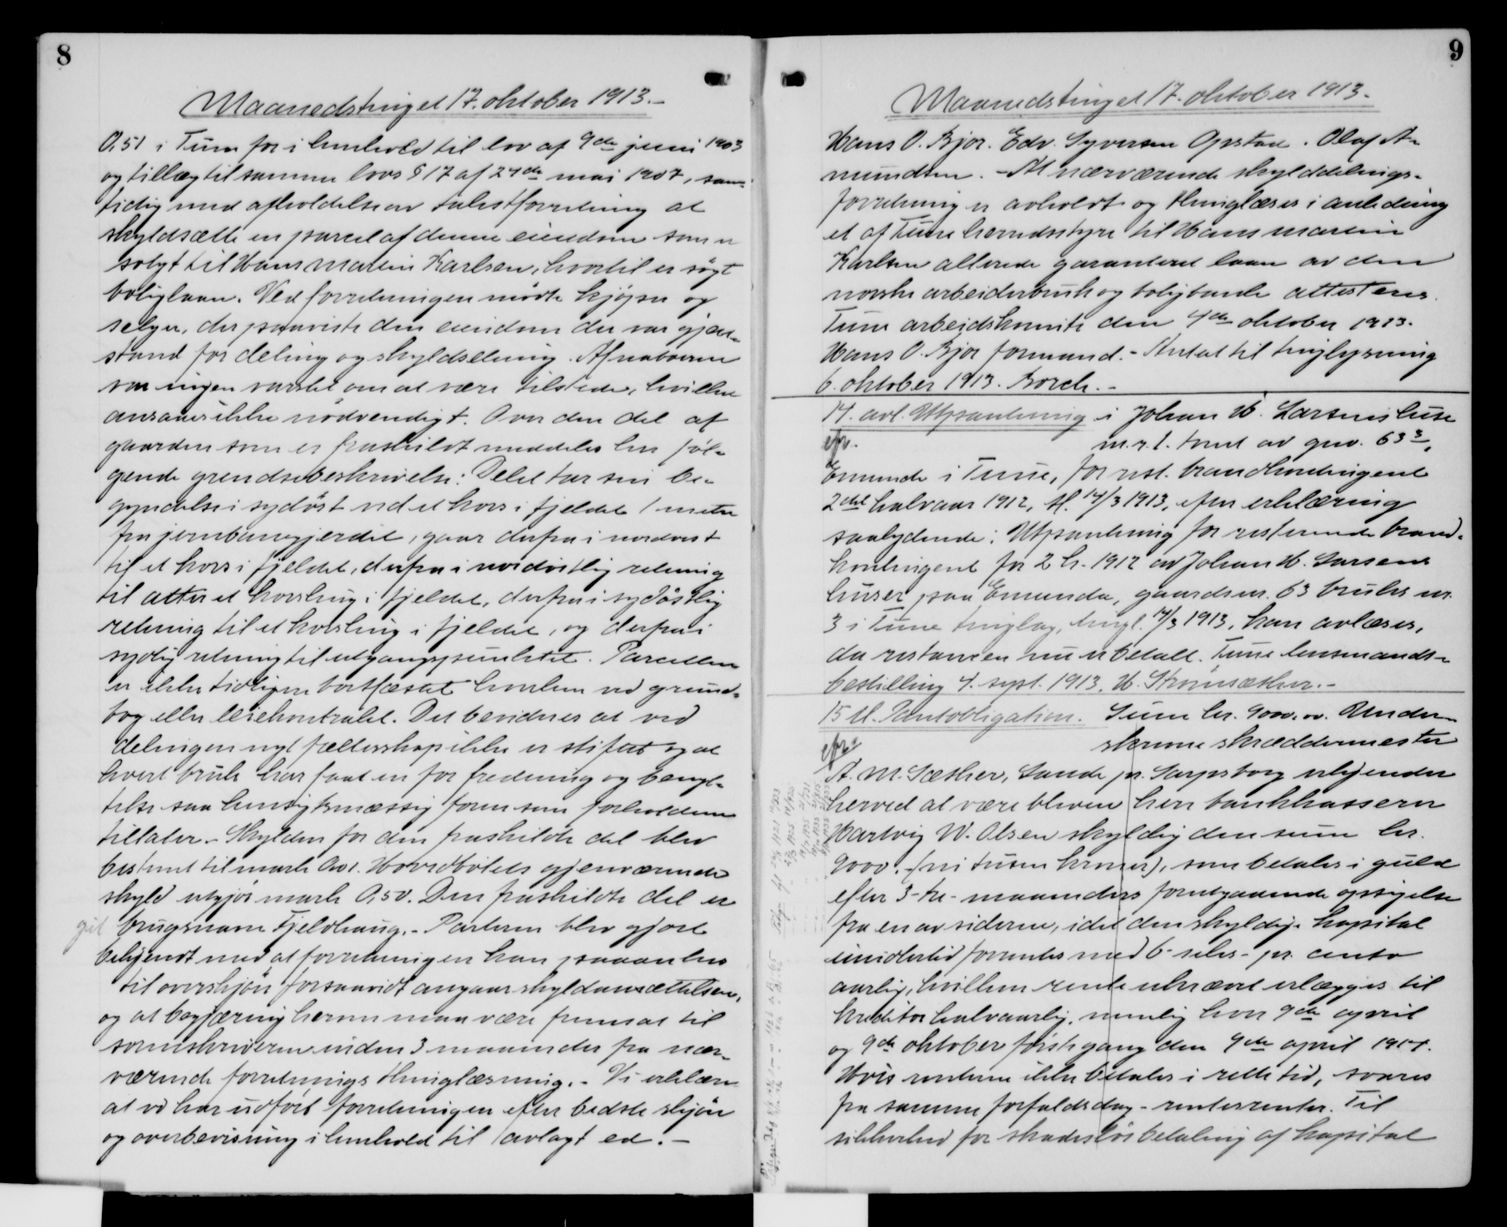 8
Maanedstinget 17. oktober 1913.-
0,51 i Tune for i henhold til lov af 9de juni 1903
og tillæg til samme lovs § 17 af 27de mai 1907, sam-
tidig med afholdelse av takstforretning at
skyldsætte en parcel af denne eiendom som er
solgt til Hans Martin Karlsen, hvortil er søgt
boliglaan. Ved forretningen mødte kjøper og
selger, der paaviste den eiendom der var gjen-
stand for deling og skyldsetning. Af naboerne
var ingen varslet om at være tilstede, hvilket
ansaaes ikke nødvendigt. Over den del af
gaarden som er fraskildt meddeles her føl-
gende grendsebeskrivelse: Delet tar sin be-
gyndelse i sydøst ved et kors i fjeldet 1 meter
fra jernbanegjerdet, gaar derfra i nordvest
til et kors i fjeldet, derfra i nordøstlig retning
til atter et korshug i fjeldet, derfra i sydøstlig
retning til et korshug i fjeldet, og derfra i
sydlig retning til utgangspunktet. Parcellen
er ikke tidligere bortfæstet hverken ved grund-
bog eller leiekontrakt. Det bevidnes at ved
delingen nyt fællesskap ikke er stiftet og at
hvert bruk har faat en for fredning og benyt-
telse saa hensigtsmæssig form som forholdene
tillater.- Skylden for den fraskildte del blev
bestemt til mark 0,01. Hovedbølets gjenværende
skyld utgjør mark 0,50. Den fraskildte del er
git brugsnavn Fjeldhaug.- Parterne blev gjort
bekjendt med at forretningen kan paaankes
til overskjøn forsaavidt angaar skyldansættelsen,
og at begjæring herom maa være fremsat til
sorenskriveren inden 3 maaneder fra nær-
værende forretnings thinglæsning.- Vi erklærer
at vi har udført forretningen efter bedste skjøn
og overbevisning i henhold til avlagt ed.-
9
Maanedstinget 17. oktober 1913.
Hans O. Bjor. Edv. Syversen Opstad. Olaf A-
mundsen.- At nærværende skylddelings-
forretning er avholdt og thinglæses i anledning
et af Tune herredsstyre til Hans Martin
Karlsen allerede garanteret laan av den
norske arbeiderbruk og boligbank attesteres.
Tune arbeidskomite den 4de oktober 1913.
Hans O. Bjor formand.- Antat til tinglysning
6. oktober 1913. Borch.-
14. avl. Utpantning i Johan H. Larsens huse
efr. m.r.l. tomt av gno. 63³,
Emunde i Tune, for rest. brandkontingent
2det halvaar 1912, tl. 14/3 1913, efter erklæring
saalydende: Utpantning for resterende brand-
kontingent for 2 h. 1912 av Johan H. Larsens
huser paa Emunda, gaardsnr. 63 bruks nr.
3 i Tune tinglag, tingl. 14/3 1913, kan avlæses,
da restancen nu er betalt. Tune lensmands-
bestilling 4. sept. 1913. H. Strømsæther.-
15 tl. Pantobligation. Sum kr. 9000.00. Under-
efr. skrevne skræddermester
A. M. Sæther, Sande pr. Sarpsborg erkjender
herved at være bleven herr bankkasserer
Hartvig W. Olsen skyldig den sum kr.
9000.- (ni tusen kroner), som betales i guld
efter 3-tre- maaneders forutgaaende opsigelse
fra en av siderne, idet den skyldige kapital
imidlertid forrentes med 6-seks- pr. cento
aarlig, hvilken rente ukrævet erlægges til
kreditor halvaarlig, nemlig hver 9de april
og 9de oktober første gang den 9de april 1914.
Hvis renterne ikke betales i rette tid, svares
fra samme forfaldsdag - rentesrenter. Til
sikkerhed for skadesløs betaling af kapital